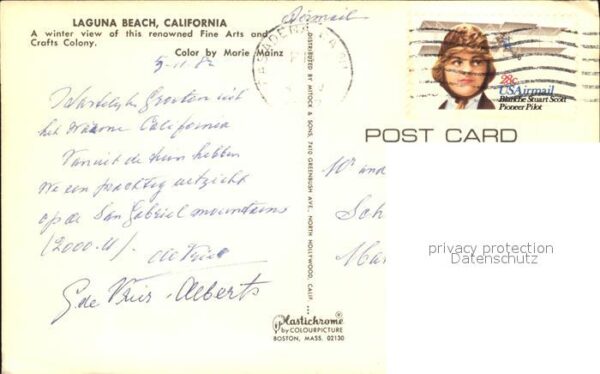 LAGUNA BEACH, CALIFORNIA
A winter view of this renowned Fine Arts and
Crafts Colony.
Color by Marie Mainz
Airmail
5-11-82
Hartelijke Groeten uit
het warme California
Vanuit de tuin hebben
We een prachtig uitzicht
op de San Gabriel mountains
(2000 M)
de Vries
G de Vries-Alberts
DISTRIBUTED BY MITOCK & SONS, 7410 GREENBUSH AVE., NORTH HOLLYWOOD, CALIF.
Plastichrome ®
by COLOURPICTURE
BOSTON, MASS. 02130
PASADENA, CA
28c
USAirmail
Blanche Stuart Scott
Pioneer Pilot
POST CARD
Mr and
Sch
Mar
privacy protection
Datenschutz